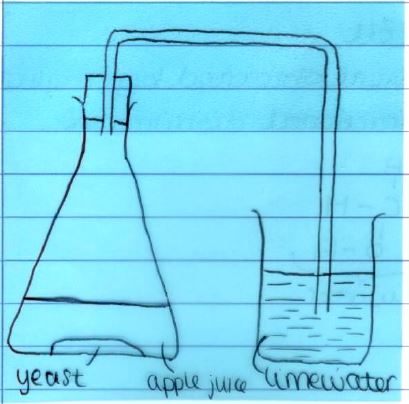 yeast apple juice limewater